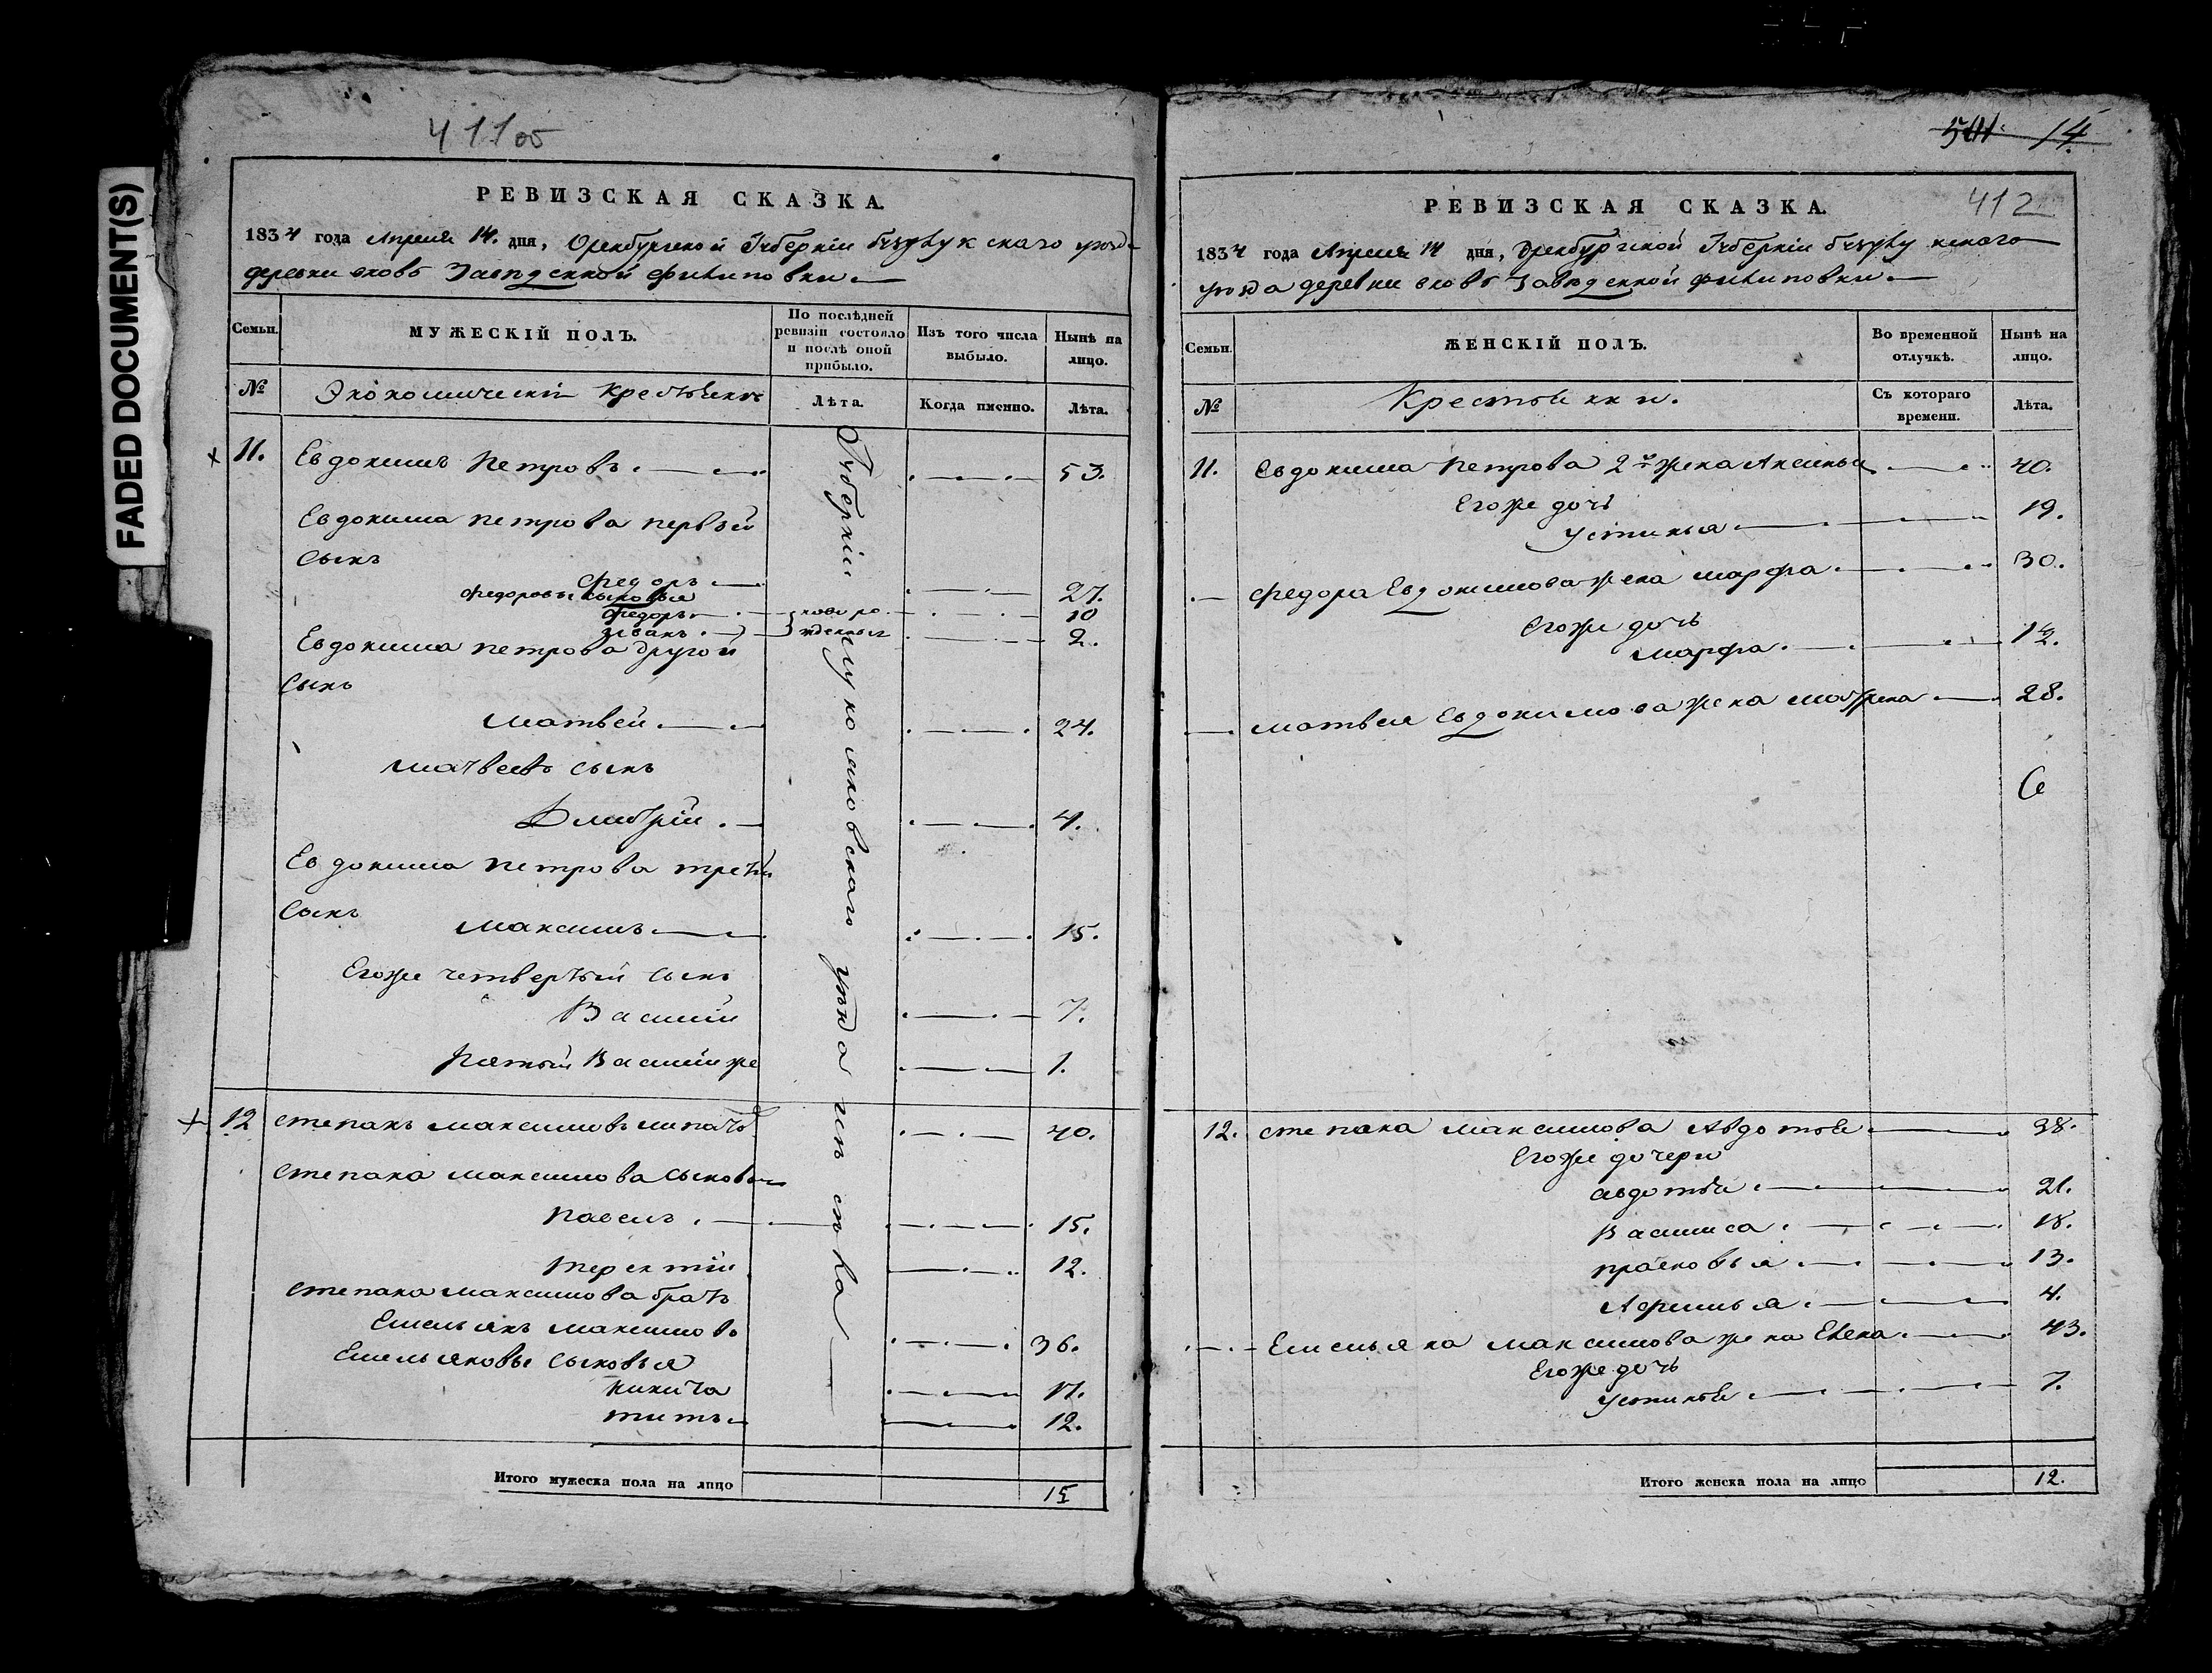 FADED DOCUMENT(S)
411об
РЕВИЗСКАЯ СКАЗКА.
1834 года Апреля 14. дня, Оренбургской Губерніи бузулукскаго уезда
деревни вновь Заведенной филиповки
Семьи.
МУЖЕСКІЙ ПОЛЪ.
По послѣдней ревизіи состояло и послѣ оной прибыло.
Изъ того числа выбыло.
Нынѣ на лицо.
№
Экономическіи крестьяне
Лѣта.
Когда именно.
Лѣта.
11. Евдокимъ Петровъ. 53.
Евдокима петрова первой
сынъ
Федоръ 27.
федоровы сыновья
Федоръ 10
новорожденные
Иванъ 2.
Евдокима петрова другой
сынъ
Матвей 24.
матвеевъ сынъ
Дмитрій 4.
Евдокима петрова третій
сынъ
Максимъ 15.
Егоже четвертый сынъ
Василій 7.
пятый Василій же 1.
Губерніи уезда
12 степанъ максимовъ 40.
степана максимова сыновья
павелъ 15.
терентій 12.
степана максимова братъ
Емельянъ максимовъ 36.
Емельяновы сыновья
никита 17.
титъ 12.
Итого мужеска пола на лицо 15
501 14
412
РЕВИЗСКАЯ СКАЗКА.
1834 года Апреля 14 дня, Оренбургской Губерніи бузулукскаго
уезда деревни вновь Заведенной филиповки
Семьи.
ЖЕНСКІЙ ПОЛЪ.
Во временной отлучкѣ.
Нынѣ на лицо.
№
Крестьянки.
Съ котораго времени.
Лѣта.
11. Евдокима петрова 2я жена Аксинья 40.
Егоже дочь
устинья 19.
федора Евдокимова жена марфа 30.
Егоже дочь
марфа. 1½.
матвея Евдокимова жена матрена 28.
12. степана максимова Авдотья 38.
Егоже дочери
авдотья 21.
Василиса 18.
прасковья 13.
Афимья 4.
Емельяна максимова жена Елена 43.
Егоже дочь
устинья 7.
Итого женска пола на лицо 12.